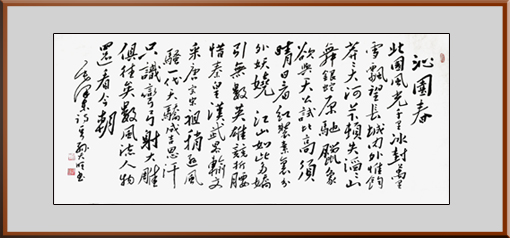 沁園春
北國風光千里冰封萬里
雪飄望長城內外惟餘
莽莽大河上下頓失滔滔山
舞銀蛇原馳臘象
欲與天公試比高須
晴日看紅裝素裹分
外妖嬈 江山如此多嬌
引無數英雄競折腰
惜秦皇漢武略輸文
采唐宗宋祖稍遜風
騷一代天驕成吉思汗
只識彎弓射大雕
俱往矣數風流人物
還看今朝
毛澤東詩